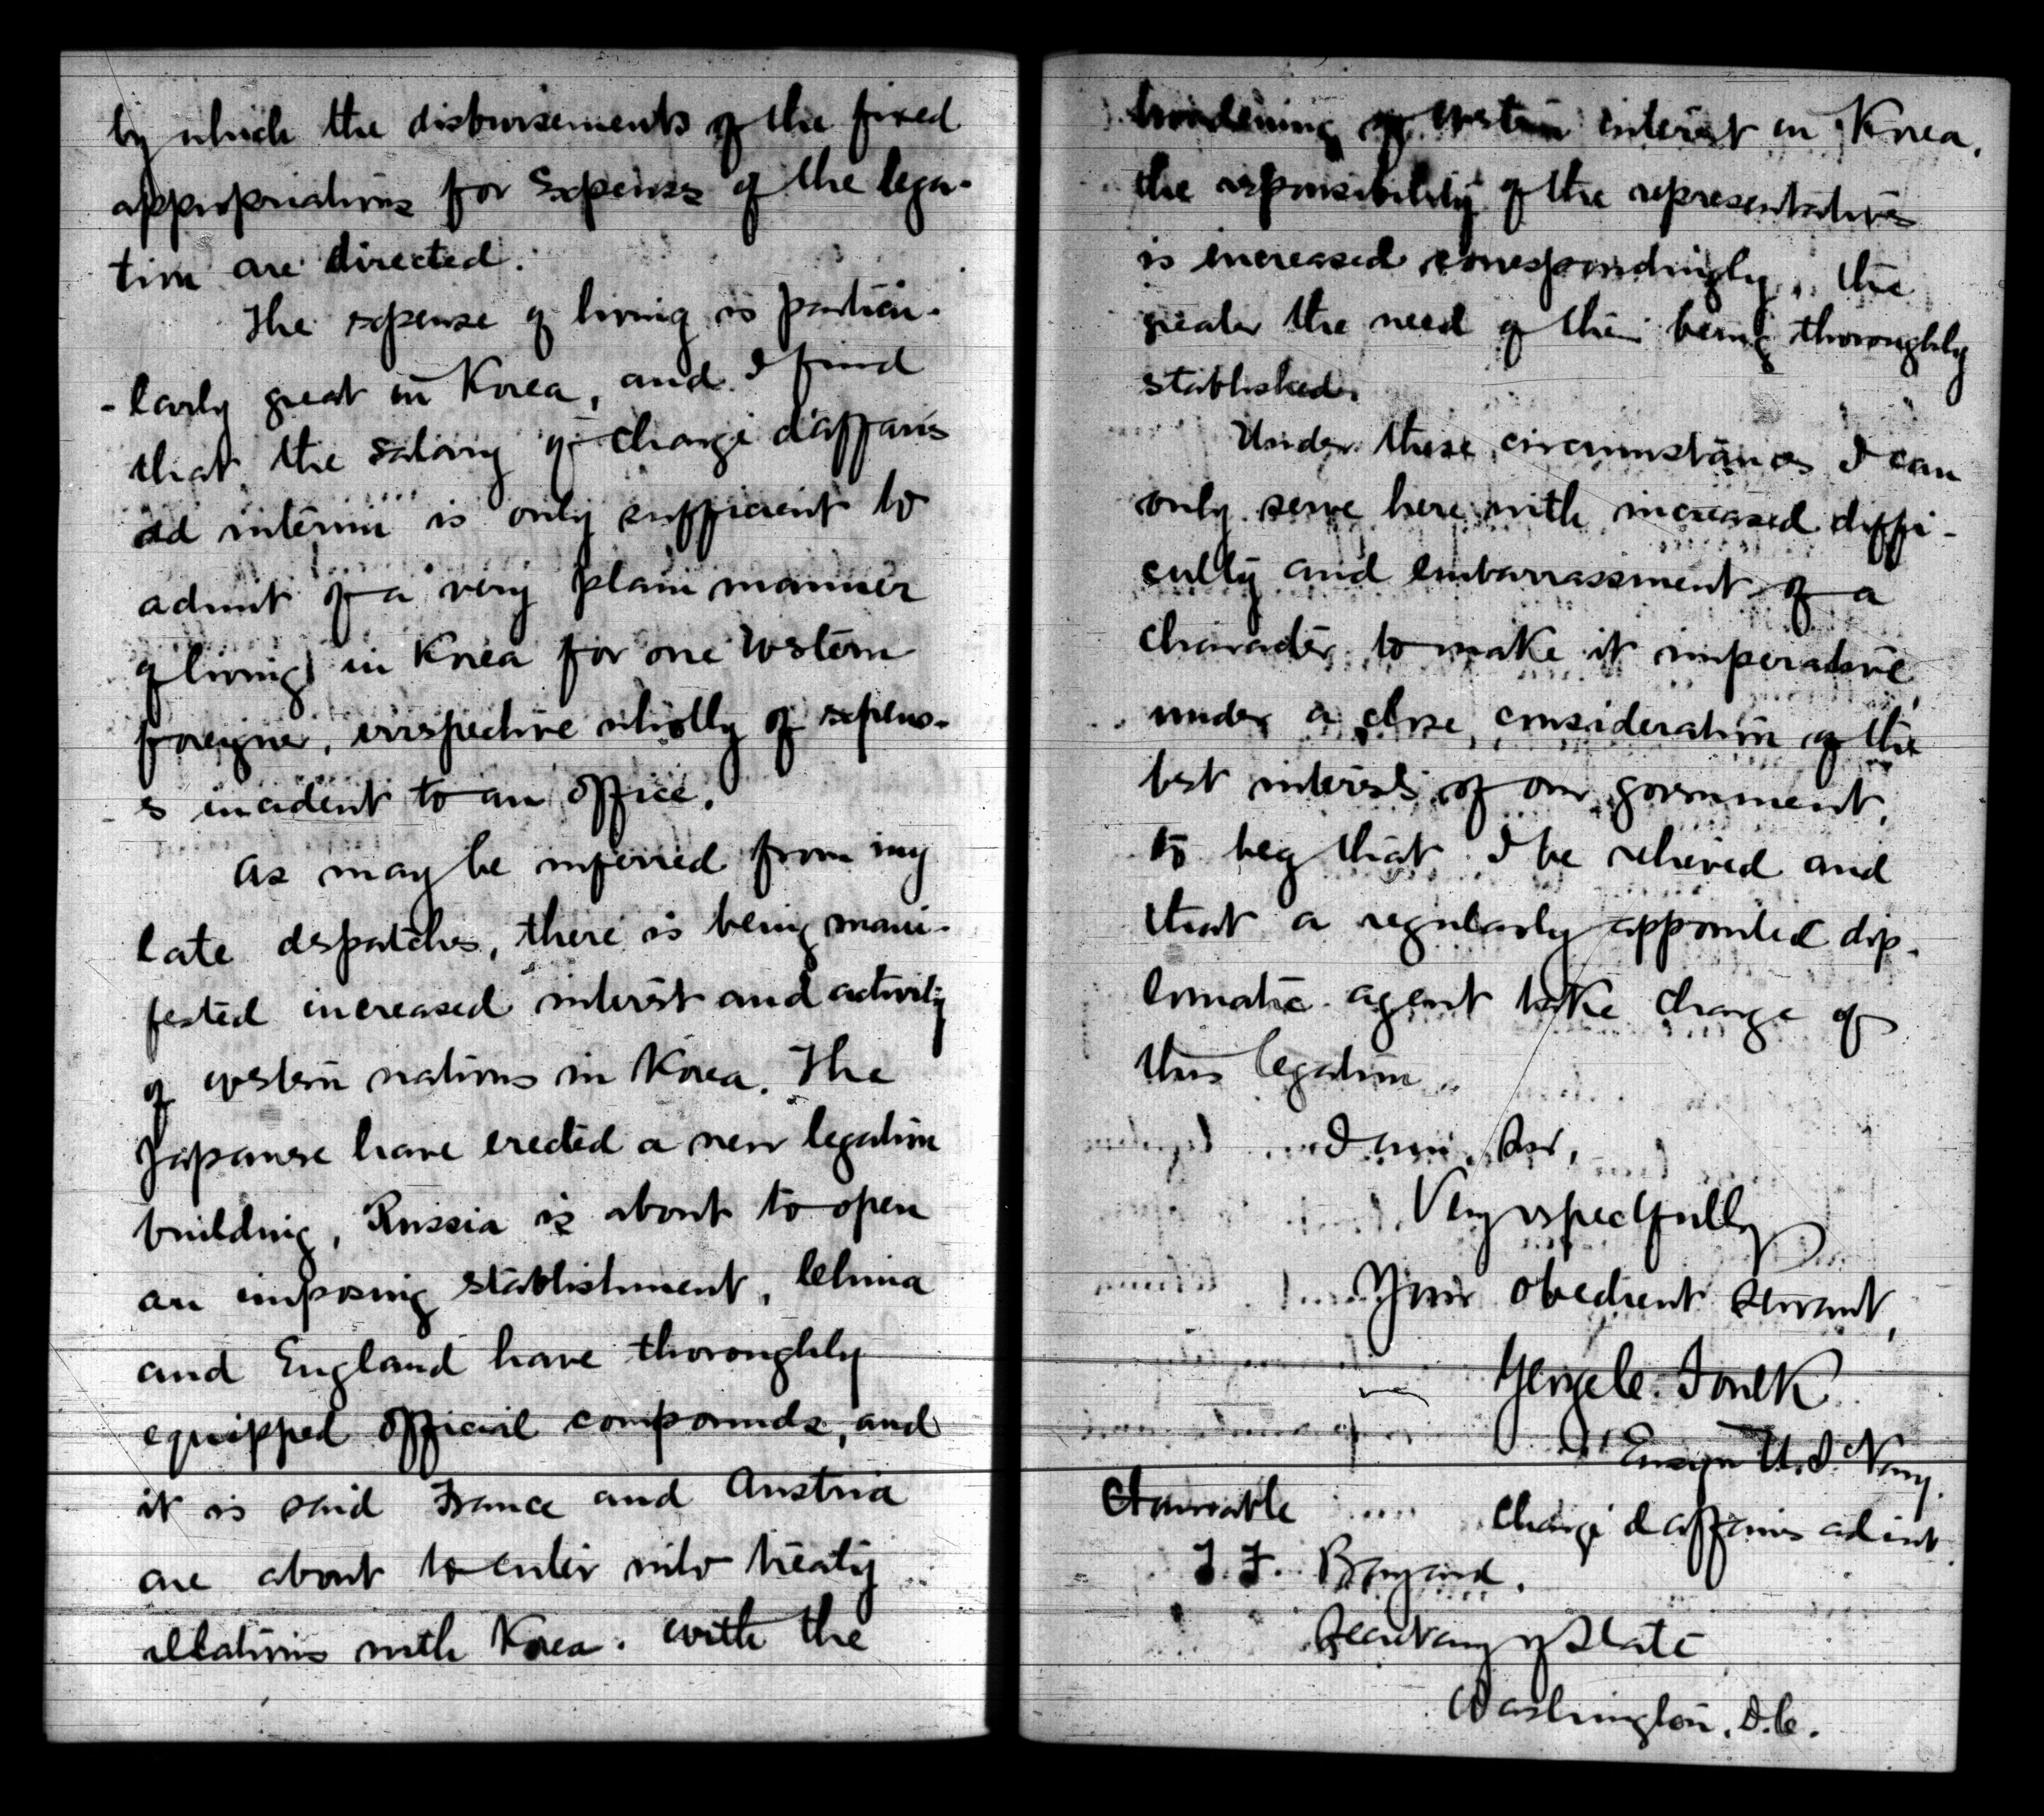 by which the disbursements of the fixed
appropriations for Expenses of the lega-
tion are directed.
The expense of living is particu-
-larly great in Korea, and I find
that the salary of chargé d'affaires
ad interim is only sufficient to
admit of a very plain manner
of living in Korea for one Western
foreigner, irrespective wholly of expens-
es incident to an office.
As may be inferred from my
late despatches, there is being mani-
fested increased interest and activity
of western nations in Korea. The
Japanese have erected a new legation
building, Russia is about to open
an imposing establishment, China
and England have thoroughly
equipped official compounds, and
it is said France and Austria
are about to enter into treaty
relations with Korea. With the
broadening of western interest in Korea,
the responsibility of the representatives
is increased correspondingly, the
greater the need of their being thoroughly
established.
Under these circumstances I can
only serve here with increased diffi-
culty and embarrassment of a
character to make it imperative,
under a close consideration of the
best interests of our government,
to beg that I be relieved and
that a regularly appointed dip-
lomatic agent take charge of
this legation.
I am, Sir,
Very respectfully
Your obedient servant,
George C. Foulk
Ensign U.S. Navy.
Chargé d'affaires ad int
Honorable
T. F. Bayard,
Secretary of State
Washington, D.C.